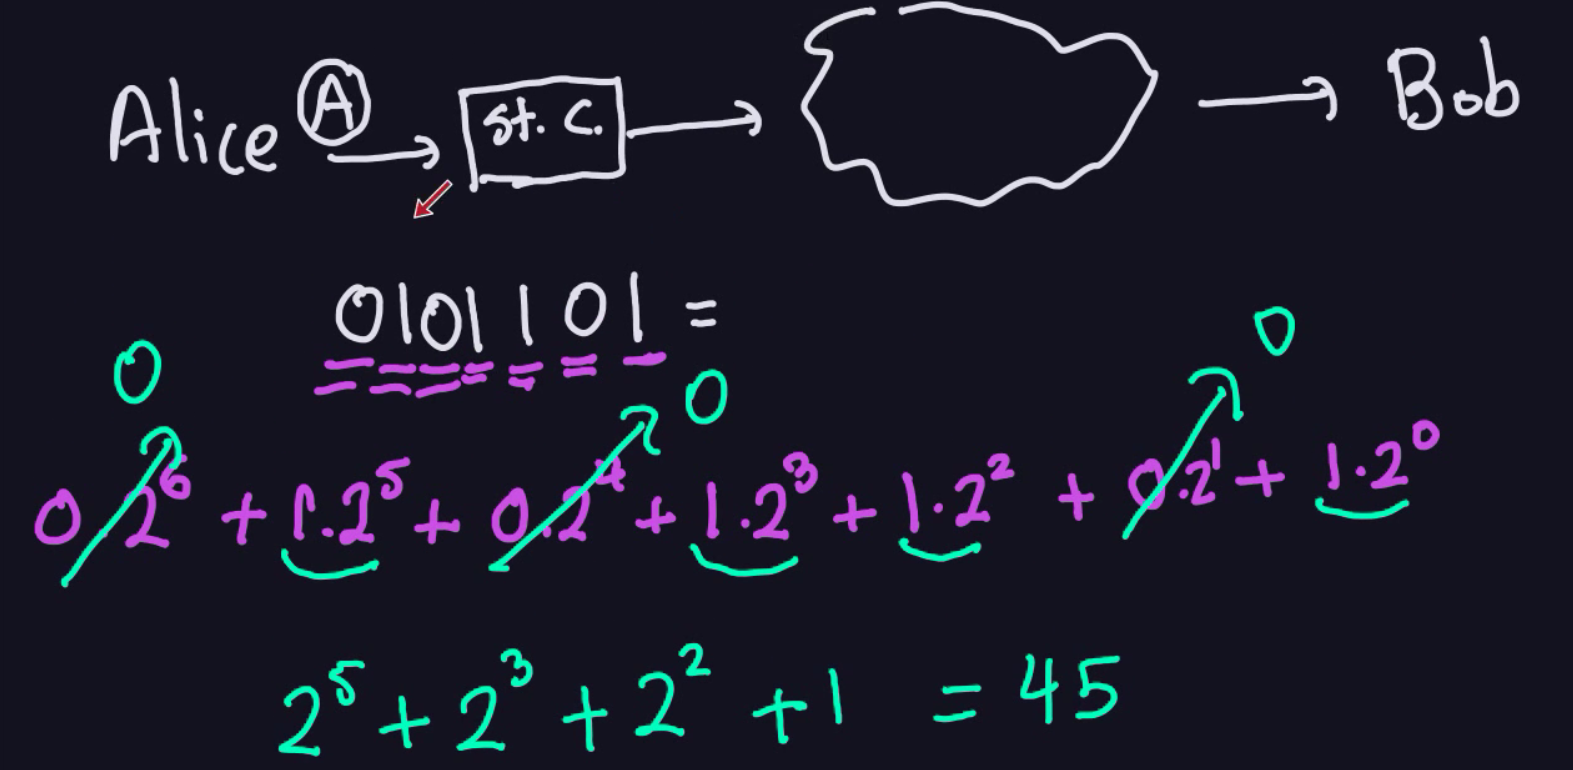 Alice A → St. C. → → Bob
0101101 =
0 0 0
0.2⁶ + 1.2⁵ + 0.2⁴ + 1.2³ + 1.2² + 0.2¹ + 1.2⁰
2⁵ + 2³ + 2² + 1 = 45